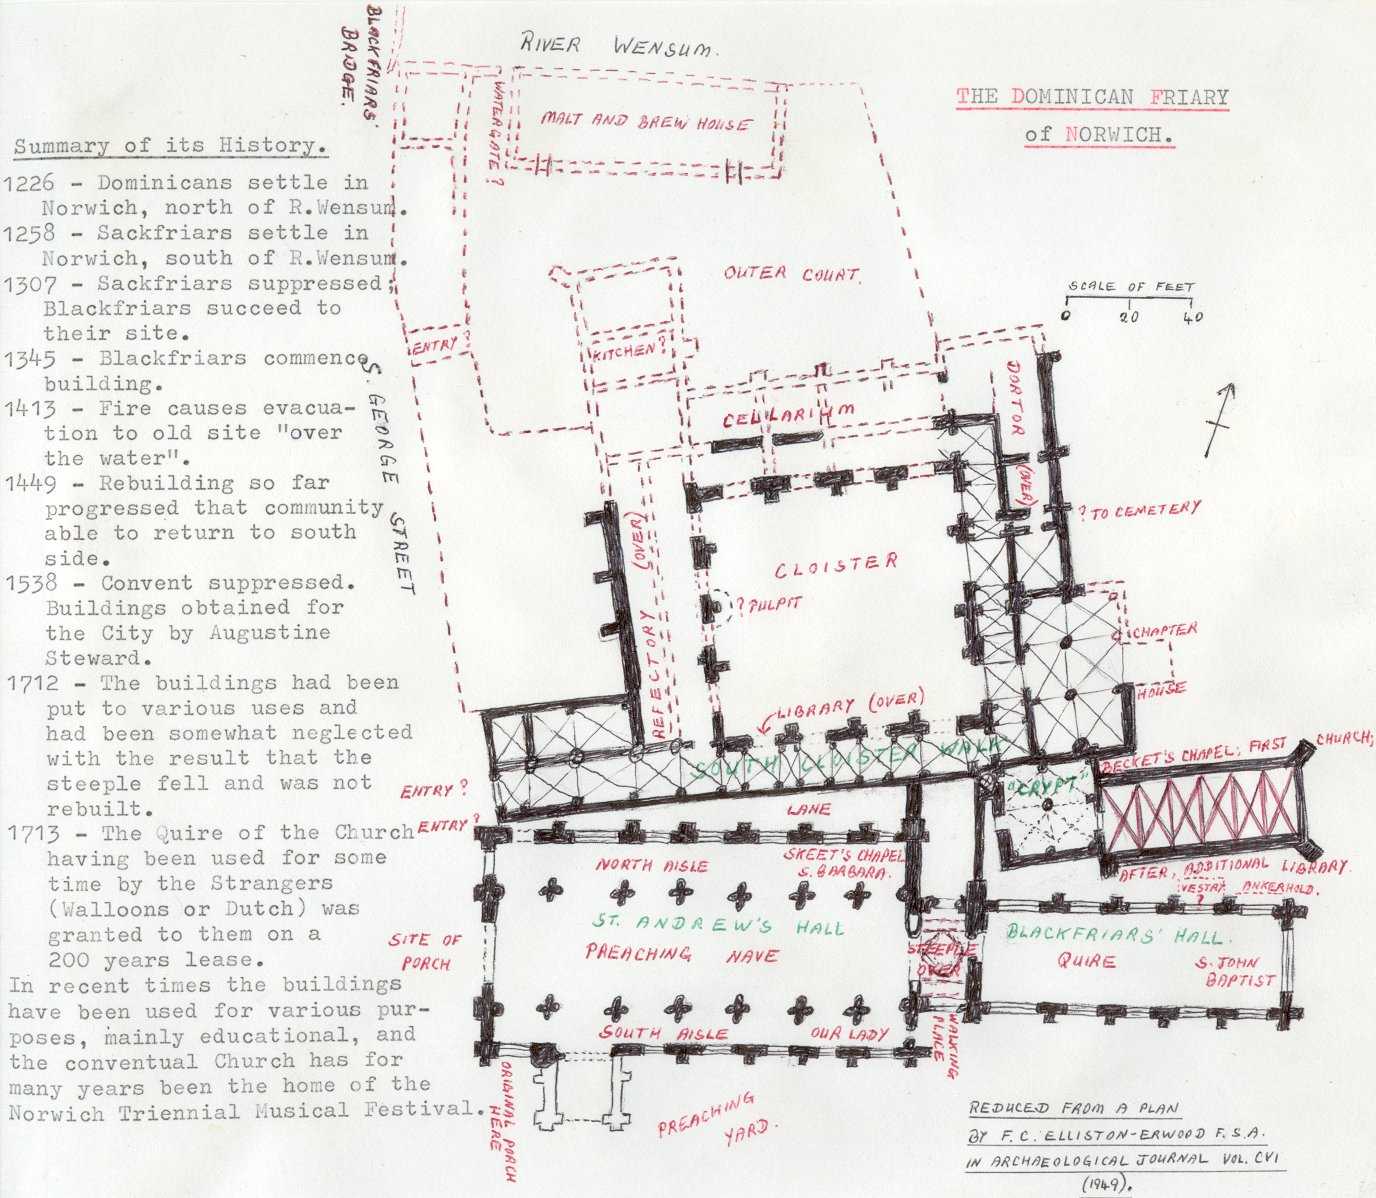 RIVER WENSUM.
BLACKFRIARS'
BRIDGE.
THE DOMINICAN FRIARY
of NORWICH.
Summary of its History.
1226 - Dominicans settle in
Norwich, north of R.Wensum.
1258 - Sackfriars settle in
Norwich, south of R.Wensum.
1307 - Sackfriars suppressed;
Blackfriars succeed to
their site.
1345 - Blackfriars commence
building.
1413 - Fire causes evacua-
tion to old site "over
the water".
1449 - Rebuilding so far
progressed that community
able to return to south
side.
1538 - Convent suppressed.
Buildings obtained for
the City by Augustine
Steward.
1712 - The buildings had been
put to various uses and
had been somewhat neglected
with the result that the
steeple fell and was not
rebuilt.
1713 - The Quire of the Church
having been used for some
time by the Strangers
(Walloons or Dutch) was
granted to them on a
200 years lease.
In recent times the buildings
have been used for various pur-
poses, mainly educational, and
the conventual Church has for
many years been the home of the
Norwich Triennial Musical Festival.
S. GEORGE STREET
WATERGATE?
MALT AND BREW HOUSE
OUTER COURT.
SCALE OF FEET
0 20 40
ENTRY?
KITCHEN?
CELLARIUM
DORTOR
(OVER)
? TO CEMETERY
REFECTORY (OVER)
CLOISTER
? PULPIT
CHAPTER
HOUSE
LIBRARY (OVER)
SOUTH CLOISTER WALK
"CRYPT"
BECKET'S CHAPEL; FIRST CHURCH;
AFTER, ADDITIONAL LIBRARY.
VESTRY ANKERHOLD.
?
ENTRY?
ENTRY?
LANE
NORTH AISLE
SKEET'S CHAPEL
S. BARBARA.
ST. ANDREW'S HALL
PREACHING NAVE
SITE OF
PORCH
STEEPLE
OVER
BLACKFRIARS' HALL.
QUIRE
S. JOHN
BAPTIST
SOUTH AISLE
OUR LADY
WALKING
PLACE
ORIGINAL PORCH
HERE
PREACHING
YARD.
REDUCED FROM A PLAN
BY F. C. ELLISTON-ERWOOD F.S.A.
IN ARCHAEOLOGICAL JOURNAL VOL. CVI
(1949).